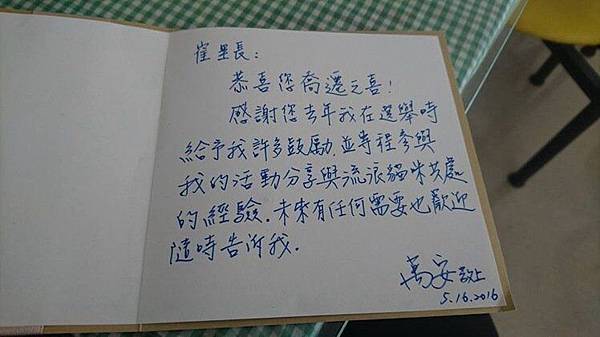 崔里長:
恭喜您喬遷之喜!
感謝您去年我在選舉時
給予我許多鼓勵,並專程參與
我的活動分享與流浪貓咪共處
的經驗.未來有任何需要也歡迎
隨時告訴我.
萬安 敬上
5.16.2016